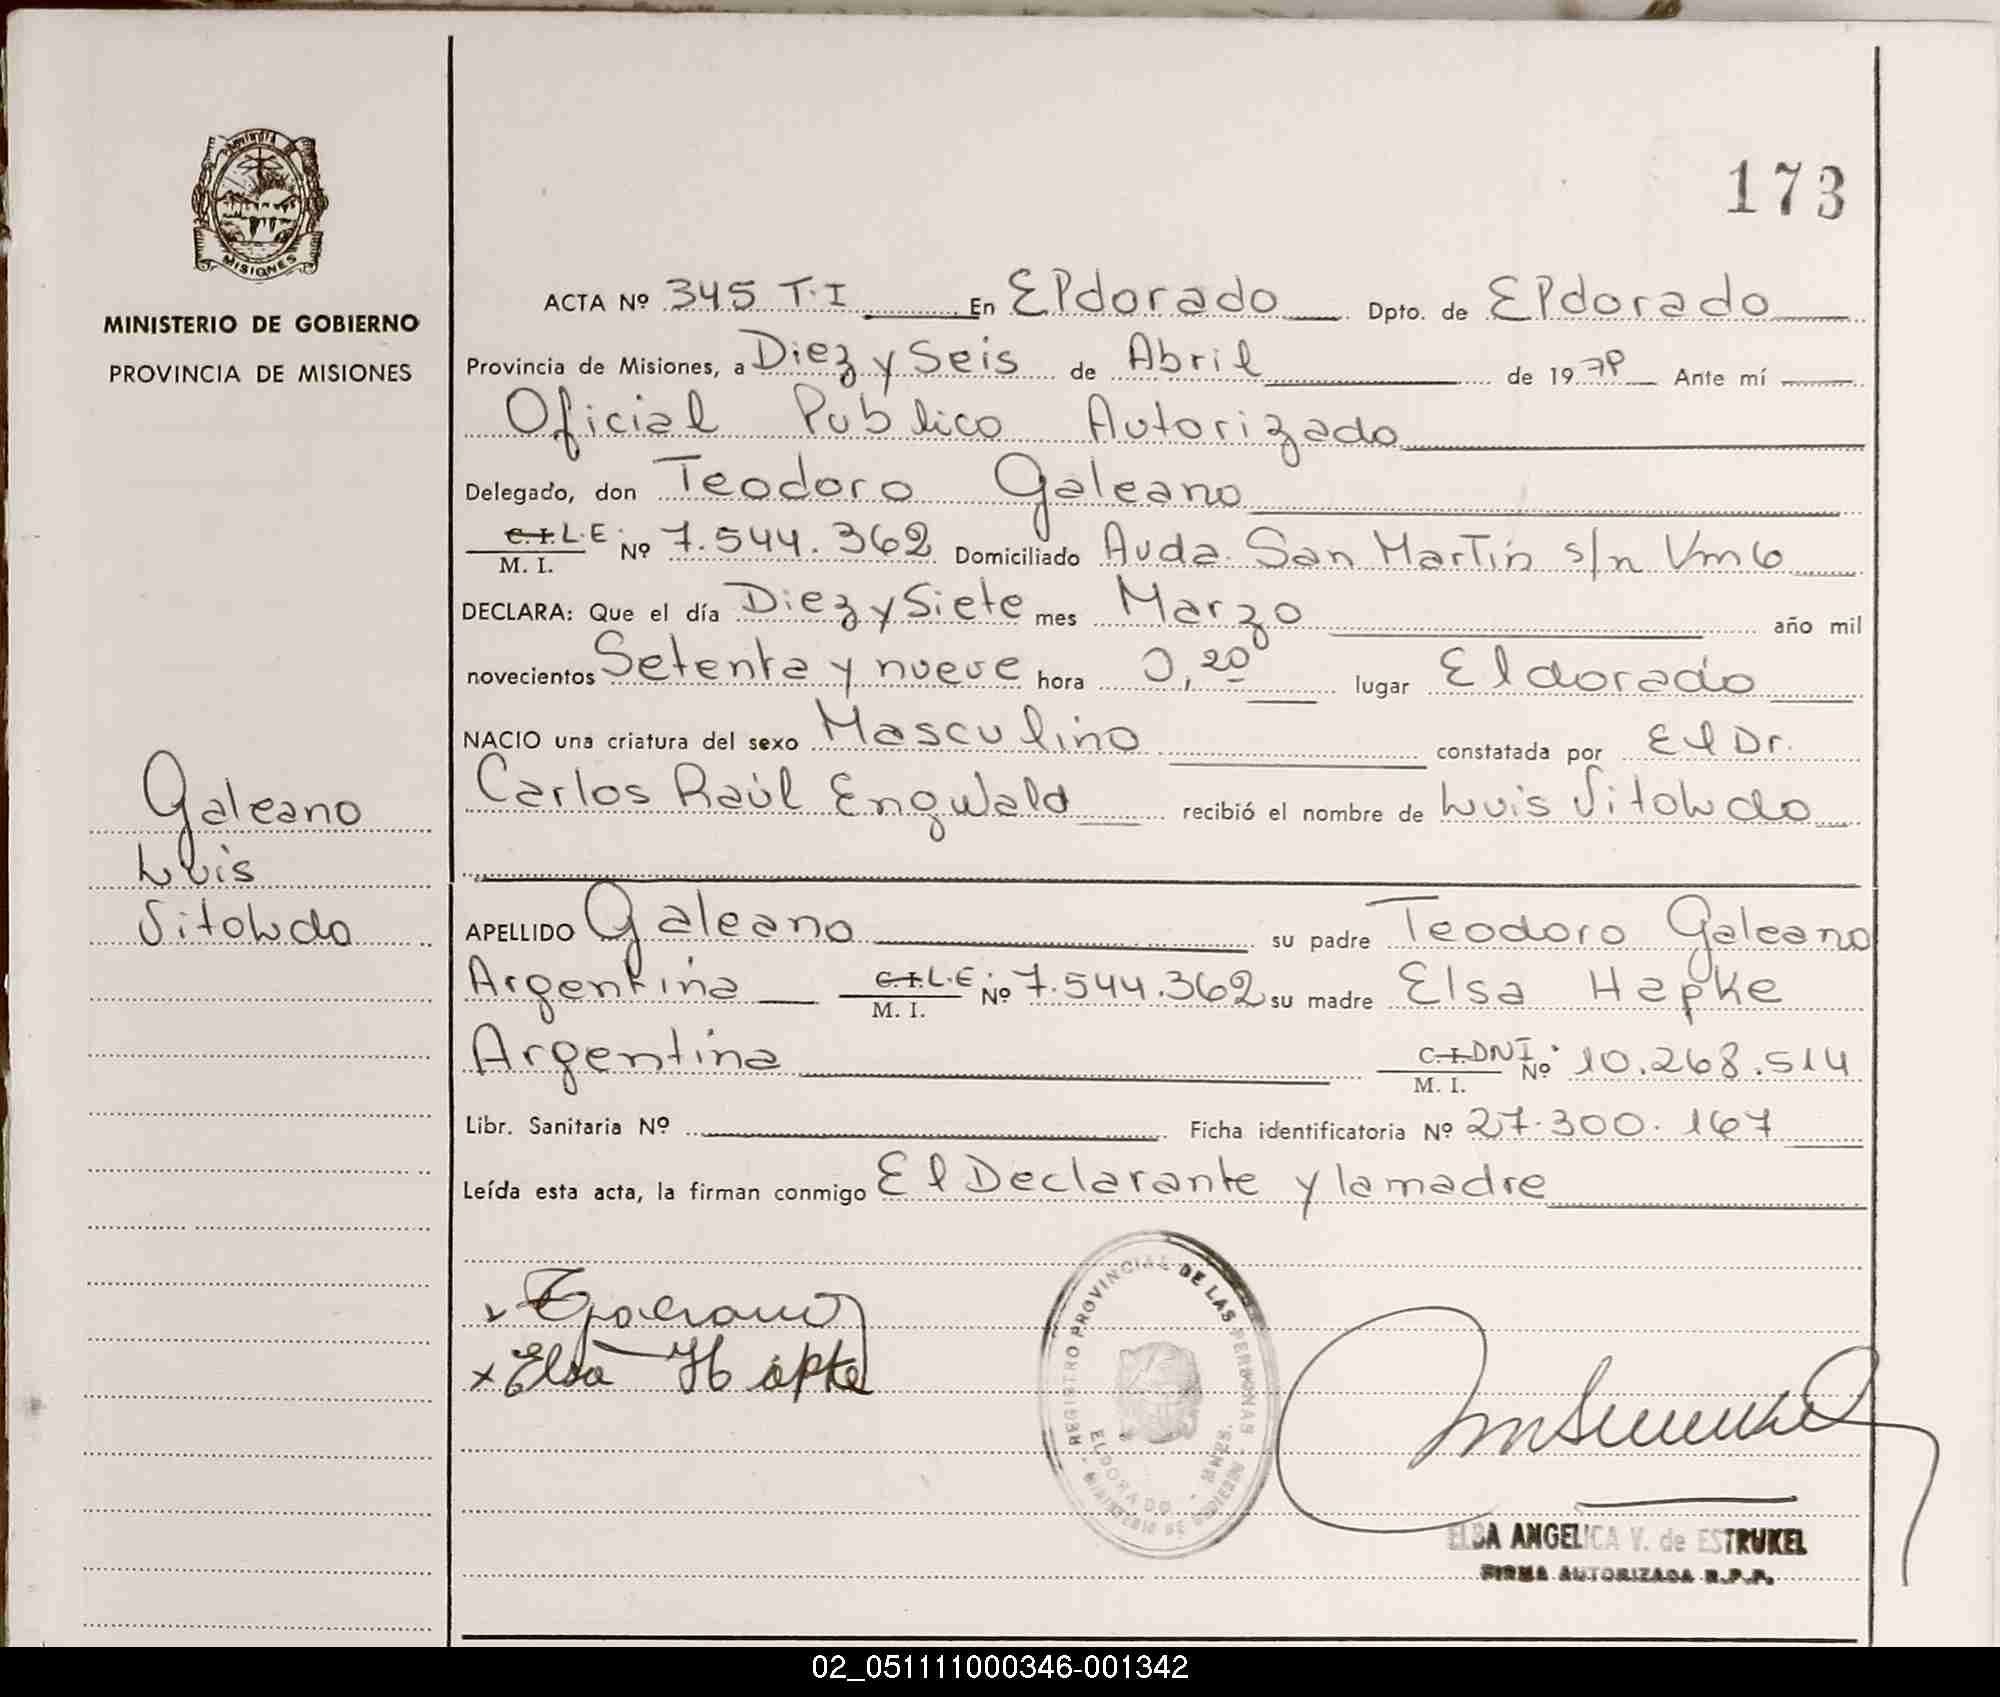 173
PROVINCIA
MISIONES
MINISTERIO DE GOBIERNO
PROVINCIA DE MISIONES
ACTA Nº 345 T.I En Eldorado Dpto. de Eldorado
Provincia de Misiones, a Diez y Seis de Abril de 1979 Ante mí
Oficial Publico Autorizado
Delegado, don Teodoro Galeano
C.I. L.E. M. I. Nº 7.544.362 Domiciliado Avda. San Martín s/n Km 6
DECLARA: Que el día Diez y Siete mes Marzo año mil
novecientos Setenta y nueve hora 0,20 lugar Eldorado
NACIO una criatura del sexo Masculino constatada por El Dr.
Carlos Raúl Engwald recibió el nombre de Luis Vitoldo
Galeano
Luis
Vitoldo
APELLIDO Galeano su padre Teodoro Galeano
Argentina C.I. L.E. M. I. Nº 7.544.362 su madre Elsa Hapke
Argentina C.I. DNI M. I. Nº 10.268.514
Libr. Sanitaria Nº Ficha identificatoria Nº 27.300.167
Leída esta acta, la firman conmigo El Declarante y la madre
x Elsa Hapke
REGISTRO PROVINCIAL DE LAS PERSONAS
ELDORADO - MNES.
ELBA ANGELICA V. de ESTRUKEL
FIRMA AUTORIZADA R.P.P.
02_051111000346-001342